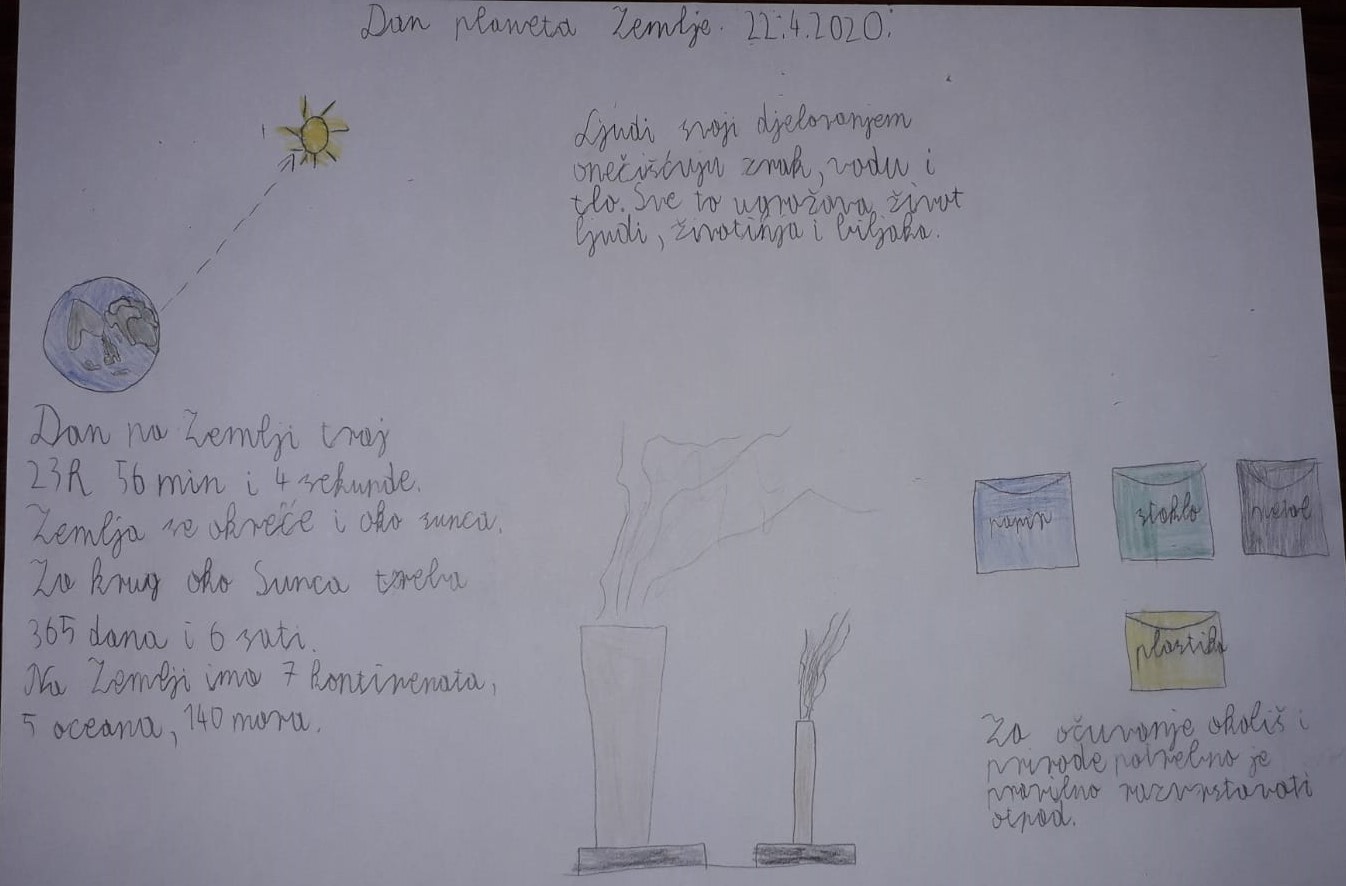 Dan planeta Zemlje. 22.4.2020.
Ljudi svoji djelovanjem
onečišćuju zrak, vodu i
tlo. Sve to ugrožava život
ljudi, životinja i biljaka.
Dan na Zemlji traj
23h 56 min i 4 sekunde.
Zemlja se okreće i oko sunca.
Za krug oko Sunca treba
365 dana i 6 sati.
Na Zemlji ima 7 kontinenata,
5 oceana, 140 mora.
papir
staklo
metal
plastika
Za očuvanje okoliš i
prirode potrebno je
pravilno razvrstavati
otpad.